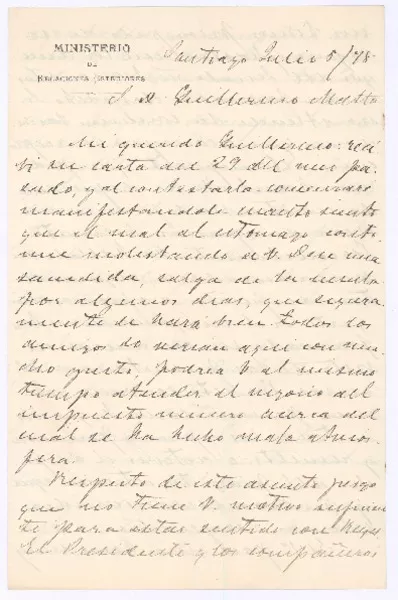 MINISTERIO
DE
RELACIONES EXTERIORES
Santiago Julio 5/78
S. D. Guillermo Matta
Mi querido Guillermo: reci
bí su carta del 29 del mes pa
sado, y al contestarla comenzaré
manifestandole cuanto siento
que el mal al estomago conti
nue molestando a V. Dese una
sacudida, salga de la
por algunos dias, que segura
mente le hará bien. Todos los
amigos lo verian aqui con mu
cho gusto, podria V al mismo
tiempo atender al negocio del
impuesto minero acerca del
cual se ha hecho mala atmos
fera.
Respecto de este asunto juzgo
que no tiene V. motivo suficien
te para estar sentido con
El Presidente y los compañeros